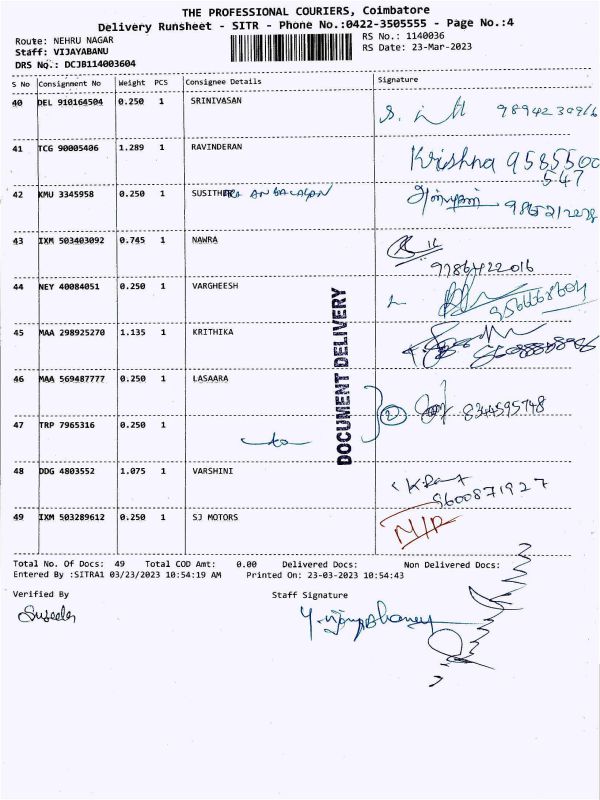 THE PROFESSIONAL COURIERS, Coimbatore
Delivery Runsheet - SITR - Phone No.:0422-3505555 - Page No.:4
Route: NEHRU NAGAR
RS No.: 1140036
Staff: VIJAYABANU
RS Date: 23-Mar-2023
DRS No.: DCJB114003604
S No Consignment No Weight PCS Consignee Details Signature
40 DEL 910164504 0.250 1 SRINIVASAN
41 TCG 90005406 1.289 1 RAVINDERAN Krishna 9585500
547
42 KMU 3345958 0.250 1 SUSITHRA
43 IXM 503403092 0.745 1 NAWRA
9786422016
44 NEY 40084051 0.250 1 VARGHEESH
45 MAA 298925270 1.135 1 KRITHIKA
46 MAA 569487777 0.250 1 LASAARA
2 8344595748
47 TRP 7965316 0.250 1
DOCUMENT DELIVERY
48 DDG 4803552 1.075 1 VARSHINI
9600871927
49 IXM 503289612 0.250 1 SJ MOTORS
Total No. Of Docs: 49 Total COD Amt: 0.00 Delivered Docs: Non Delivered Docs:
Entered By :SITRA1 03/23/2023 10:54:19 AM Printed On: 23-03-2023 10:54:43
Verified By Staff Signature